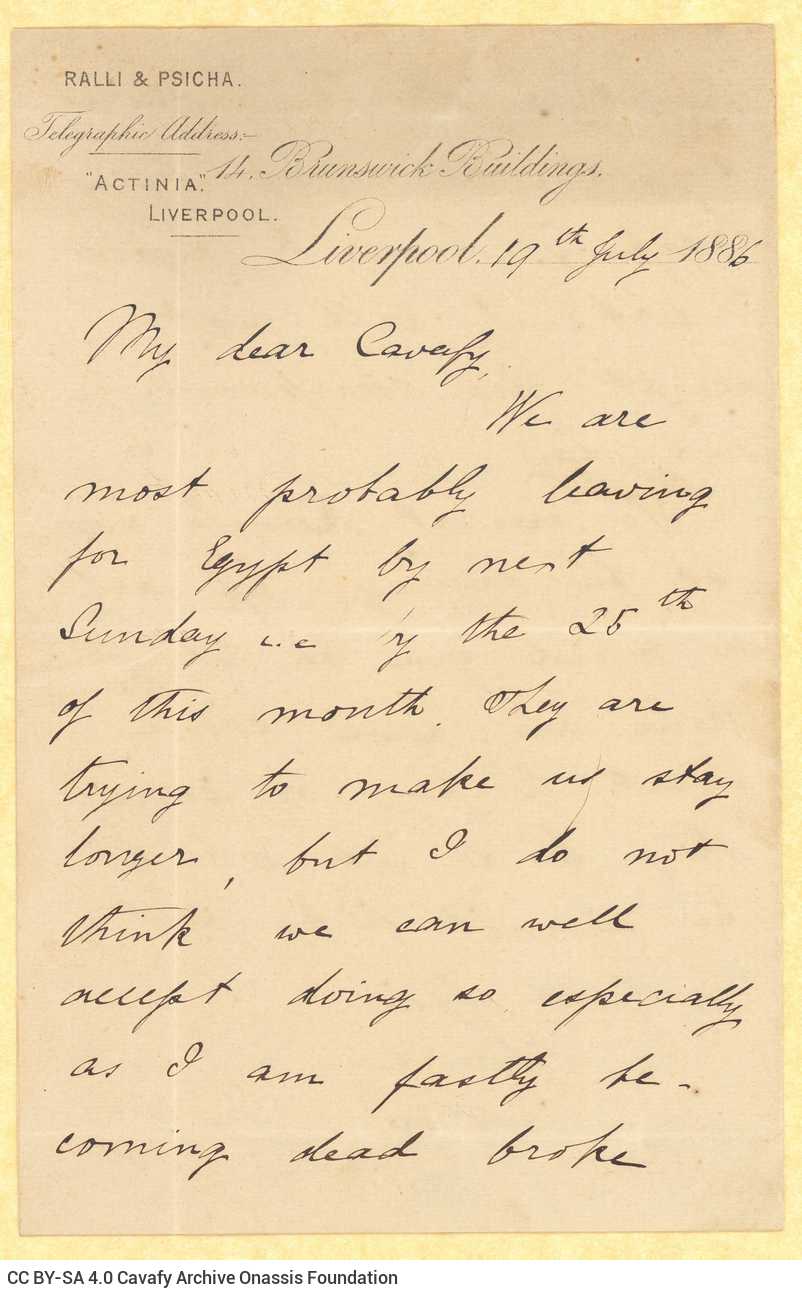 RALLI & PSICHA.
Telegraphic Address:-
"ACTINIA".
LIVERPOOL.
14. Brunswick Buildings.
Liverpool. 19th July 1886
My dear Cavafy,
We are
most probably leaving
for Egypt by next
Sunday i.e by the 25th
of this month. They are
trying to make us stay
longer, but I do not
think we can well
accept doing so especially
as I am fastly be-
coming dead broke
CC BY-SA 4.0 Cavafy Archive Onassis Foundation